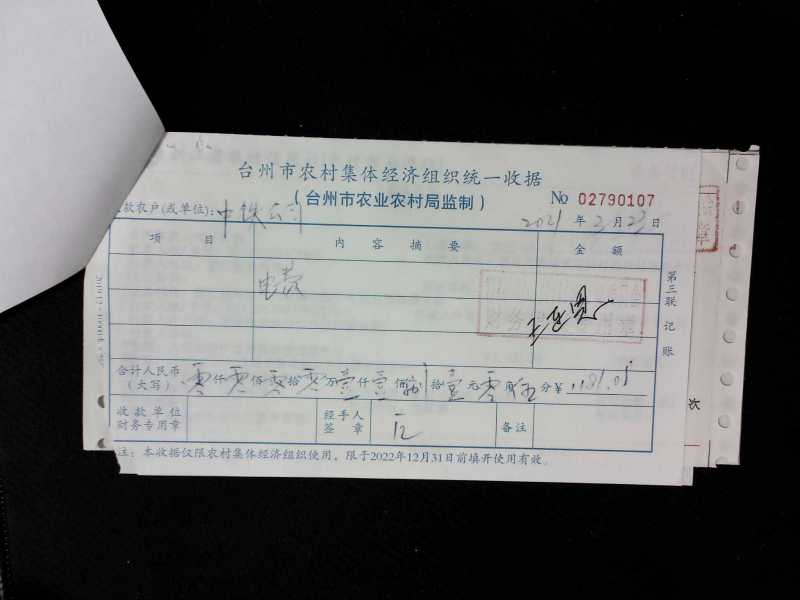 台州市农村集体经济组织统一收据
(台州市农业农村局监制)
No 02790107
款农户(或单位): 中铁公司
2021 年 3 月 23 日
项 目 内 容 摘 要 金 额
电费
第三联 记账
合计人民币(大写) 零仟零佰零拾零万壹仟壹佰捌拾壹元零角伍分 ¥ 1181.05
收款单位财务专用章
经手人签章
备注
注: 本收据仅限农村集体经济组织使用, 限于2022年12月31日前填开使用有效。
次